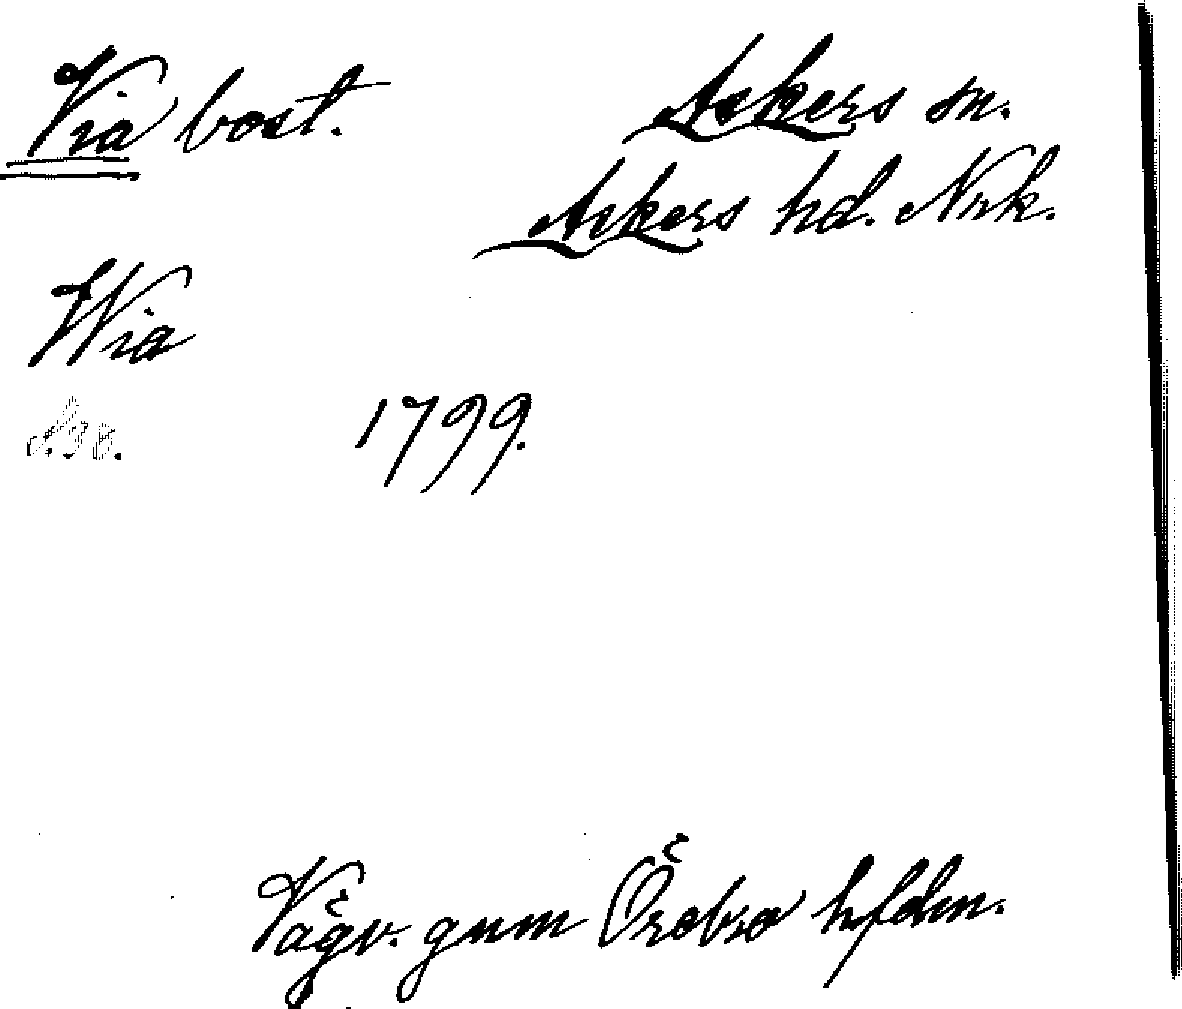 Via bost. Askers sn.
Askers hd. Nrk.
Wia
1799.
Vägv. gnm Örebro hfdm.